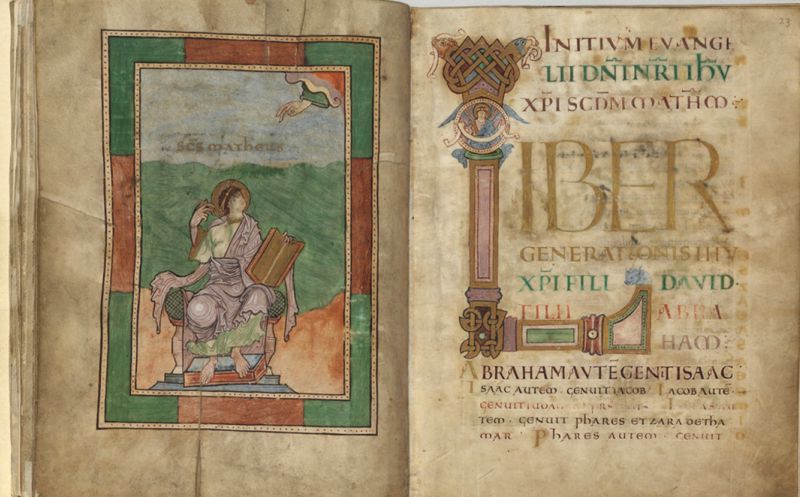 SC̄S MATHEUS
23
INITIUM EUANGE
LII DN̄I N̄R̄I IH̄U
XP̄I SCDM MATHM :
LIBER
GENERATIONIS IHU
XP̄I FILI DAVID·
FILII ABRA
HAM:
ABRAHAM AUTĒ GENT ISAAC
ISAAC AUTEM · GENUIT IACOB IACOB AUTĒ
GENUIT IUDAM
TEM · GENUIT PHARES ET ZARA DE THA
MAR · PHARES AUTEM · GENUIT